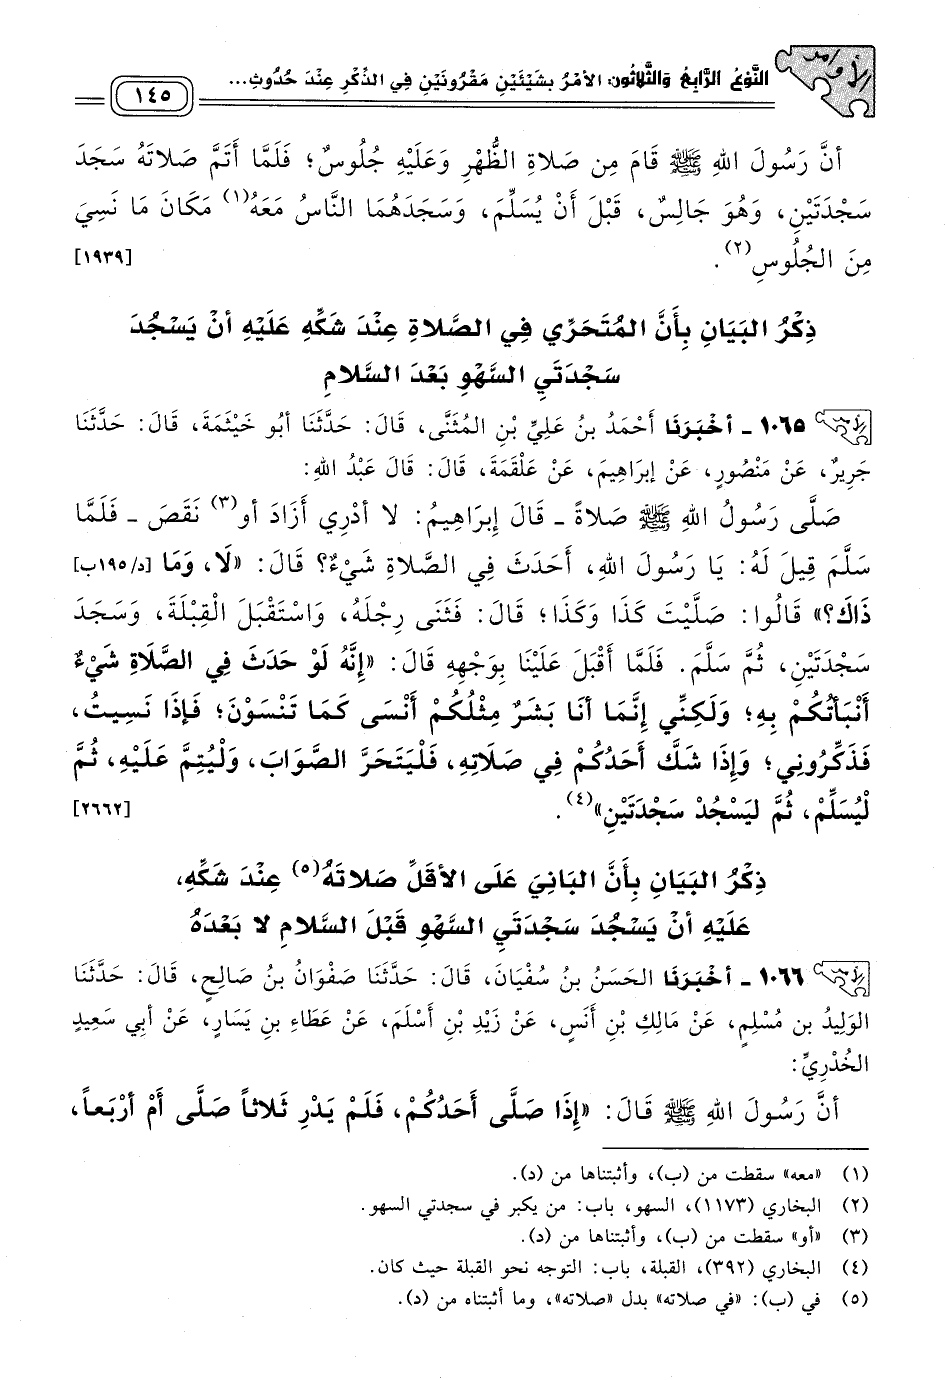 الأوامر
النَّوْعُ الرَّابِعُ وَالثَّلَاثُونَ: الأَمْرُ بِشَيْئَيْنِ مَقْرُونَيْنِ فِي الذِّكْرِ عِنْدَ حُدُوثِ...
١٤٥
أنَّ رَسُولَ اللهِ ﷺ قَامَ مِن صَلاةِ الظُّهْرِ وَعَلَيْهِ جُلُوسٌ؛ فَلَمَّا أَتَمَّ صَلاتَهُ سَجَدَ
سَجْدَتَيْنِ، وَهُوَ جَالِسٌ، قَبْلَ أَنْ يُسَلِّمَ، وَسَجَدَهُمَا النَّاسُ مَعَهُ(١) مَكَانَ مَا نَسِيَ
مِنَ الجُلُوسِ(٢). [١٩٣٩]
ذِكْرُ البَيَانِ بِأَنَّ المُتَحَرِّي فِي الصَّلاةِ عِنْدَ شَكِّهِ عَلَيْهِ أنْ يَسْجُدَ
سَجْدَتَيِ السَّهْوِ بَعْدَ السَّلامِ
١٠٦٥ - أخْبَرَنَا أَحْمَدُ بنُ عَلِيِّ بْنِ المُثَنَّى، قَالَ: حَدَّثَنَا أبُو خَيْثَمَةَ، قَالَ: حَدَّثَنَا
جَرِيرٌ، عَنْ مَنْصُورٍ، عَنْ إبرَاهِيمَ، عَنْ عَلْقَمَةَ، قَالَ: قَالَ عَبْدُ اللهِ:
صَلَّى رَسُولُ اللهِ ﷺ صَلاةً - قَالَ إبْرَاهِيمُ: لا أَدْرِي أَزَادَ أو(٣) نَقَصَ - فَلَمَّا
سَلَّمَ قِيلَ لَهُ: يَا رَسُولَ اللهِ، أَحَدَثَ فِي الصَّلاةِ شَيْءٌ؟ قَالَ: «لَا، وَمَا [د/١٩٥ب]
ذَاكَ؟» قَالُوا: صَلَّيْتَ كَذَا وَكَذَا؛ قَالَ: فَثَنَى رِجْلَهُ، وَاسْتَقْبَلَ الْقِبْلَةَ، وَسَجَدَ
سَجْدَتَيْنِ، ثُمَّ سَلَّمَ. فَلَمَّا أَقْبَلَ عَلَيْنَا بِوَجْهِهِ قَالَ: «إِنَّهُ لَوْ حَدَثَ فِي الصَّلَاةِ شَيْءٌ
أَنْبَأْتُكُمْ بِهِ؛ وَلَكِنِّي إِنَّمَا أَنَا بَشَرٌ مِثْلُكُمْ أَنْسَى كَمَا تَنْسَوْنَ؛ فَإذَا نَسِيتُ،
فَذَكِّرُونِي؛ وَإِذَا شَكَّ أَحَدُكُمْ فِي صَلَاتِهِ، فَلْيَتَحَرَّ الصَّوَابَ، وَلْيُتِمَّ عَلَيْهِ، ثُمَّ
لْيُسَلِّمْ، ثُمَّ لْيَسْجُدْ سَجْدَتَيْنِ»(٤). [٢٦٦٢]
ذِكْرُ البَيَانِ بِأَنَّ البَانِيَ عَلَى الأَقَلِّ صَلاتَهُ(٥) عِنْدَ شَكِّهِ،
عَلَيْهِ أنْ يَسْجُدَ سَجْدَتَيِ السَّهْوِ قَبْلَ السَّلامِ لا بَعْدَهُ
١٠٦٦ - أخْبَرَنَا الحَسَنُ بنُ سُفْيَانَ، قَالَ: حَدَّثَنَا صَفْوَانُ بنُ صَالِحٍ، قَالَ: حَدَّثَنَا
الوَلِيدُ بن مُسْلِمٍ، عَنْ مَالِكِ بْنِ أَنَسٍ، عَنْ زَيْدِ بْنِ أَسْلَمَ، عَنْ عَطَاءِ بنِ يَسَارٍ، عَنْ أبِي سَعِيدٍ
الخُدْرِيِّ:
أنَّ رَسُولَ اللهِ ﷺ قَالَ: «إِذَا صَلَّى أَحَدُكُمْ، فَلَمْ يَدْرِ ثَلاثاً صَلَّى أَمْ أَرْبَعاً،
(١) «معه» سقطت من (ب)، وأثبتناها من (د).
(٢) البخاري (١١٧٣)، السهو، باب: من يكبر في سجدتي السهو.
(٣) «أو» سقطت من (ب)، وأثبتناها من (د).
(٤) البخاري (٣٩٢)، القبلة، باب: التوجه نحو القبلة حيث كان.
(٥) في (ب): «في صلاته» بدل «صلاته»، وما أثبتناه من (د).